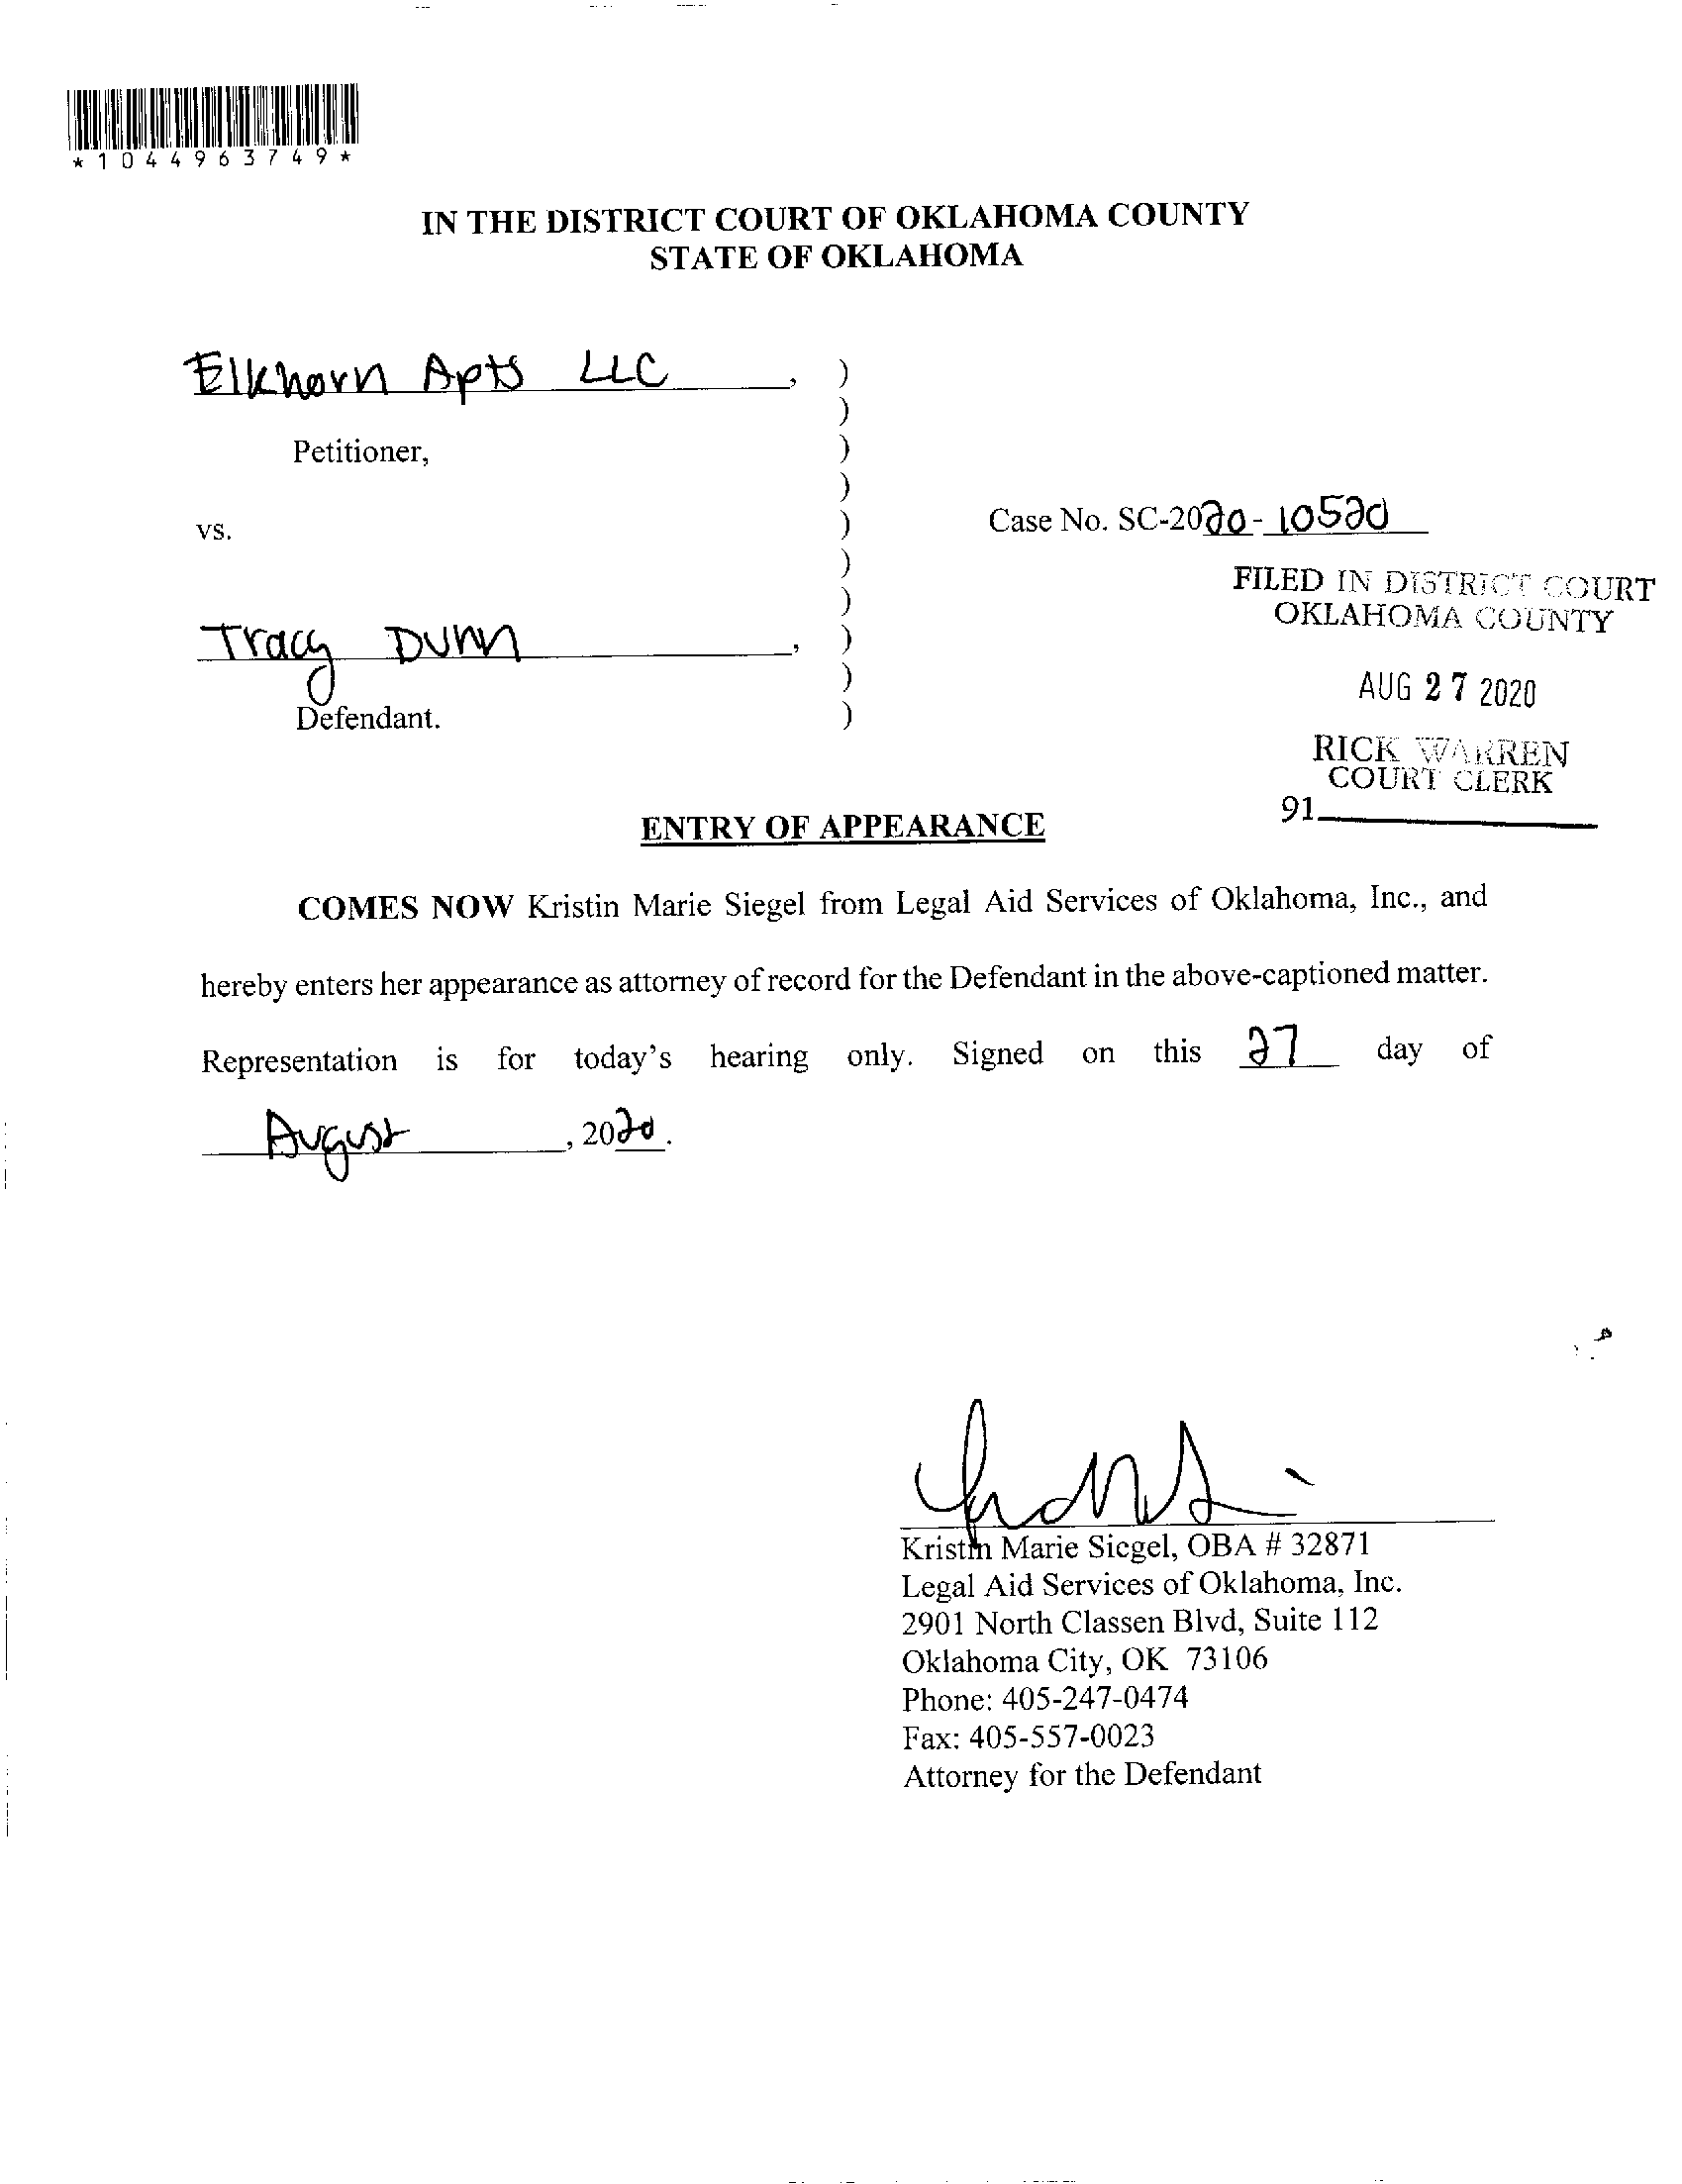 *1044963749*
IN THE DISTRICT COURT OF OKLAHOMA COUNTY
STATE OF OKLAHOMA
Elkhorn Apts LLC, )
)
Petitioner, )
)
vs. ) Case No. SC-2020-10520
)
)
Tracy Dunn, )
)
Defendant. )
FILED IN DISTRICT COURT
OKLAHOMA COUNTY
AUG 27 2020
RICK WARREN
COURT CLERK
91
ENTRY OF APPEARANCE
COMES NOW Kristin Marie Siegel from Legal Aid Services of Oklahoma, Inc., and
hereby enters her appearance as attorney of record for the Defendant in the above-captioned matter.
Representation is for today's hearing only. Signed on this 27 day of
August, 2020.
Kristin Marie Siegel, OBA # 32871
Legal Aid Services of Oklahoma, Inc.
2901 North Classen Blvd, Suite 112
Oklahoma City, OK 73106
Phone: 405-247-0474
Fax: 405-557-0023
Attorney for the Defendant